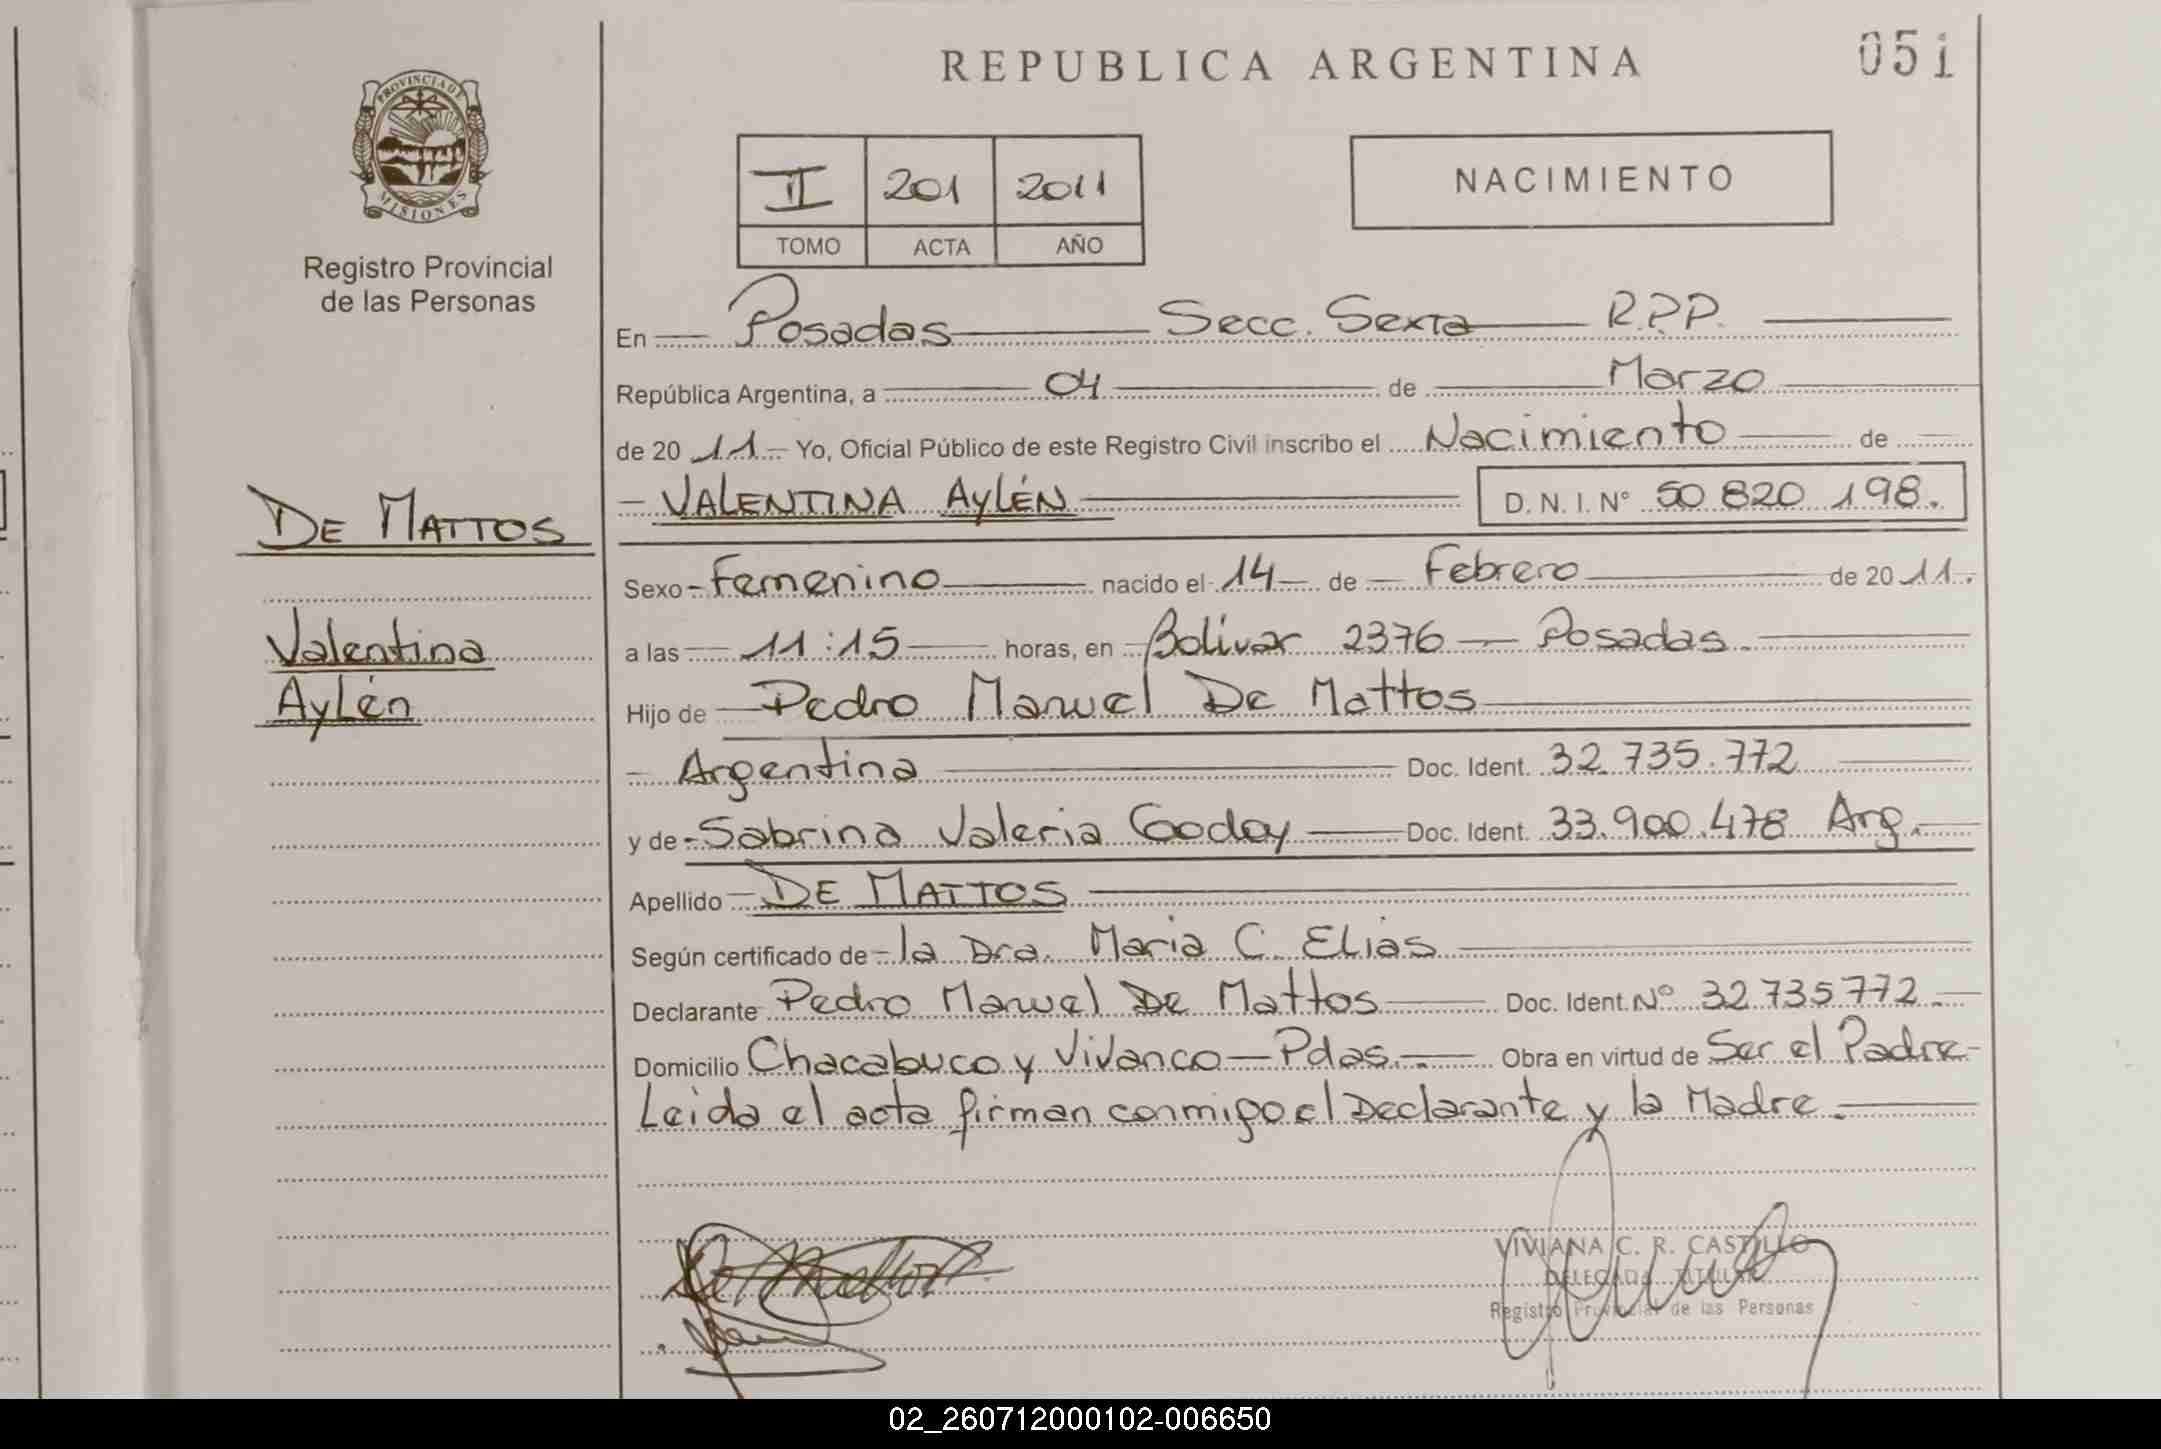 REPUBLICA ARGENTINA
051
PROVINCIA DE
MISIONES
Registro Provincial
de las Personas
II 201 2011
TOMO ACTA AÑO
NACIMIENTO
En Posadas Secc. Sexta R.P.P.
República Argentina, a 04 de Marzo
de 20 11 Yo, Oficial Público de este Registro Civil inscribo el Nacimiento de
VALENTINA AYLÉN D.N.I. Nº 50 820 198.
DE MATTOS
Valentina
Aylén
Sexo Femenino nacido el 14 de Febrero de 20 11.
a las 11:15 horas, en Bolívar 2376 Posadas.
Hijo de Pedro Manuel De Mattos
Argentina Doc. Ident. 32.735.772
y de Sabrina Valeria Godoy Doc. Ident. 33.900.478 Arg.
Apellido DE MATTOS
Según certificado de la Dra. Maria C. Elias
Declarante Pedro Manuel De Mattos Doc. Ident. Nº 32735772
Domicilio Chacabuco y Vivanco - Pdas. Obra en virtud de Ser el Padre
Leida el acta firman conmigo el Declarante y la Madre.
VIVIANA C. R. CASTILLO
DELEGADA TITULAR
Registro Provincial de las Personas
02_260712000102-006650